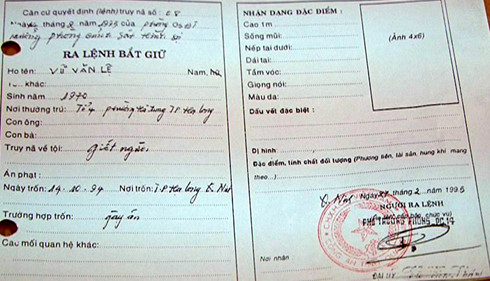 Căn cứ quyết định (lệnh) truy nã số
ngày tháng 2 năm 1995 của phòng
RA LỆNH BẮT GIỮ
Họ tên: VŨ VĂN LỆ Nam, nữ
Tên khác:
Sinh năm 1970
Nơi thường trú: Tổ 4 phường Hà Trung TP Hạ Long
Con ông:
Con bà:
Truy nã về tội: giết người
Án phạt:
Ngày trốn: 14.10.94 Nơi trốn: TP Hạ Long
Trường hợp trốn: gây án
Các mối quan hệ khác:
NHẬN DẠNG ĐẶC ĐIỂM:
Cao 1m
Sống mũi:
Nếp tai dưới:
Dái tai:
Tầm vóc:
Giọng nói:
Màu da:
Dấu vết đặc biệt:
(Ảnh 4x6)
Dị hình
Đặc điểm, tính chất đối tượng (Phương tiện, tài sản, hung khí mang
theo):
Ngày 27 tháng 2 năm 1995
NGƯỜI RA LỆNH
PHÓ TRƯỞNG PHÒNG PC14
Nơi nhận